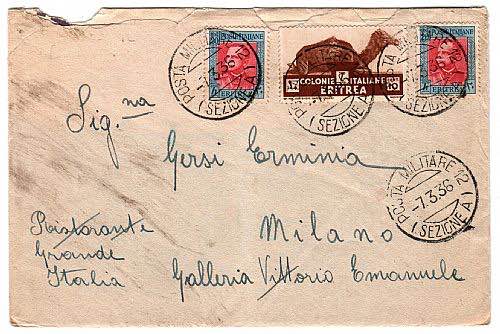 POSTE ITALIANE
ERITREA
COLONIE ITALIANE
ERITREA
POSTE ITALIANE
ERITREA
POSTA MILITARE 12
(SEZIONE A)
POSTA MILITARE 12
(SEZIONE A)
POSTA MILITARE 12
(SEZIONE A)
POSTA MILITARE 12
-7.3.36
(SEZIONE A)
Sig.na
Gersi Erminia
Milano
Ristorante
Grande
Italia
Galleria Vittorio Emanuele